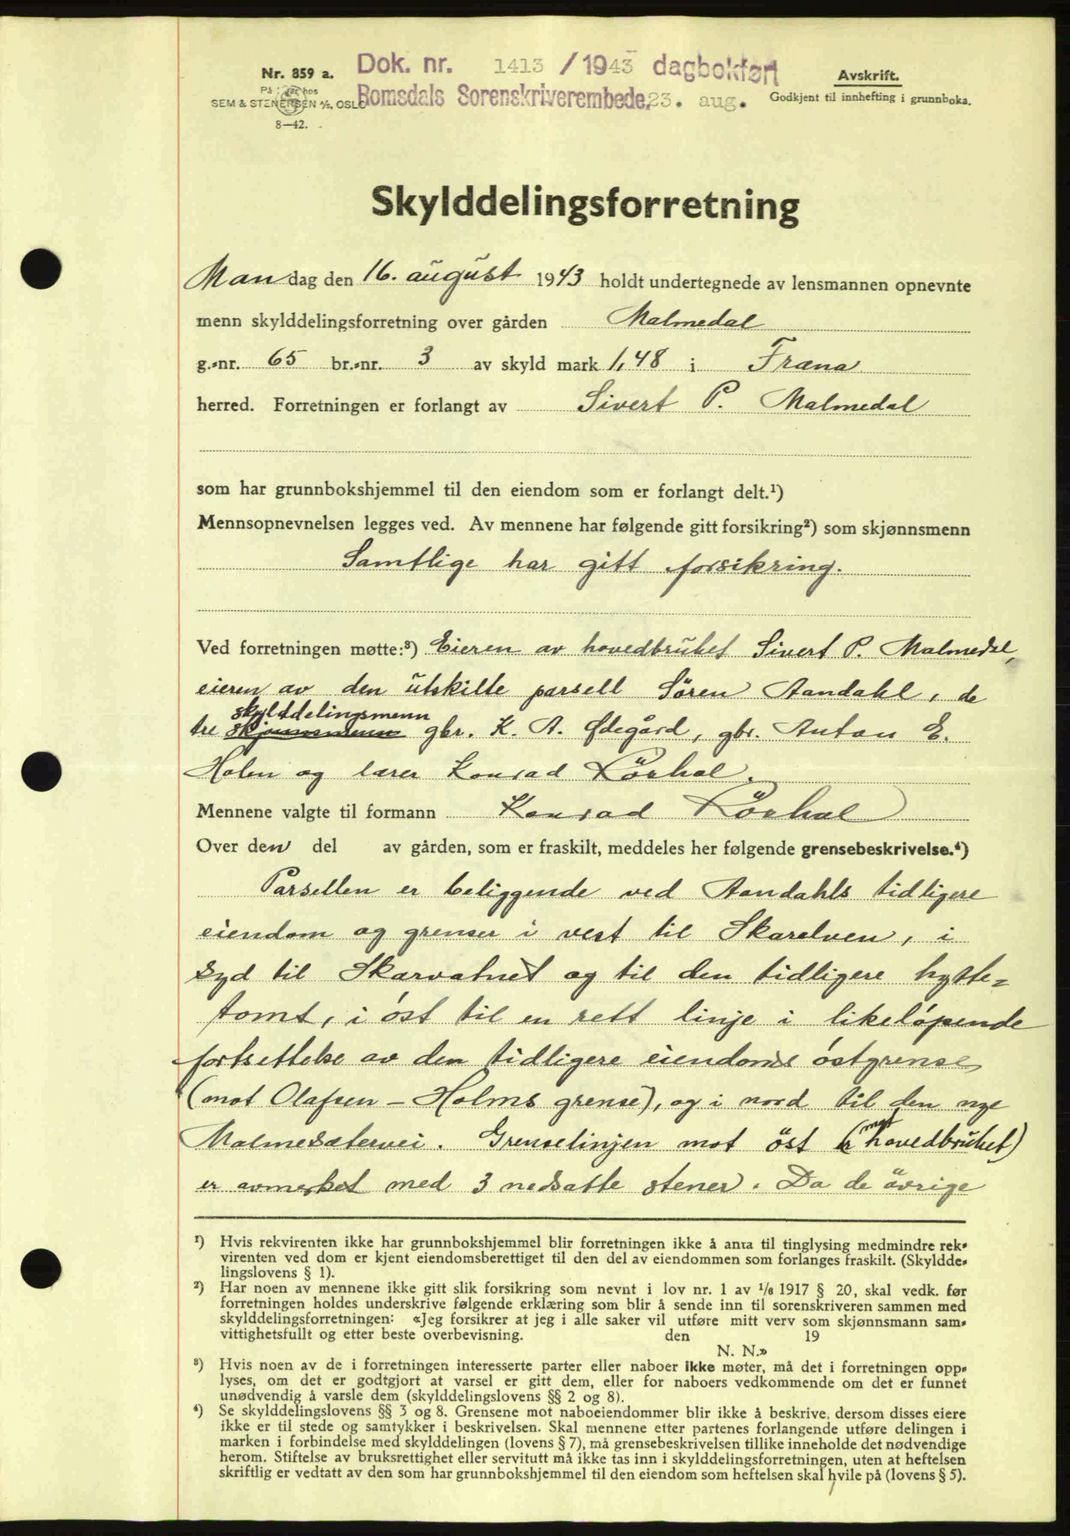 Nr. 859 a.
SEM & STENERSEN A/S, OSLO
8—42.
Dok. nr. 1413 / 1943 dagbokført
Romsdals Sorenskriverembede, 23. aug.
Avskrift.
Godkjent til innhefting i grunnboka.
Skylddelingsforretning
Mandag den 16. august 1943 holdt undertegnede av lensmannen opnevnte
menn skylddelingsforretning over gården Malmedal
g.-nr. 65 br.-nr. 3 av skyld mark 1,48 i Fræna
herred. Forretningen er forlangt av Sivert P. Malmedal
som har grunnbokshjemmel til den eiendom som er forlangt delt.¹)
Mennsopnevnelsen legges ved. Av mennene har følgende gitt forsikring²) som skjønnsmenn
Samtlige har gitt forsikring.
Ved forretningen møtte:³) Eieren av hovedbruket Sivert P. Malmedal,
eieren av den utskilte parsell Søren Aandahl, de
skylddelingsmenn
tre skjønnsmenn gbr. K. A. Ødegård, gbr. Anton E.
Holen og lærer Konrad Lörhol.
Mennene valgte til formann Konrad Lörhol
Over den del av gården, som er fraskilt, meddeles her følgende grensebeskrivelse.⁴)
Parsellen er beliggende ved Aandahls tidligere
eiendom og grenser i vest til Skarelven, i
syd til Skarvatnet og til den tidligere hytte=
tomt, i öst til en rett linje i likeløpende
fortsettelse av den tidligere eiendoms östgrense
(mot Olafsen - Holms grense), og i nord til den nye
Malmesætervei. Grenselinjen mot öst (mot hovedbruket)
er avmerket med 3 nedsatte stener. Da de övrige
¹) Hvis rekvirenten ikke har grunnbokshjemmel blir forretningen ikke å anta til tinglysing medmindre rek-
virenten ved dom er kjent eiendomsberettiget til den del av eiendommen som forlanges fraskilt. (Skyldde-
lingslovens § 1).
²) Har noen av mennene ikke gitt slik forsikring som nevnt i lov nr. 1 av 1/6 1917 § 20, skal vedk. før
forretningen holdes underskrive følgende erklæring som blir å sende inn til sorenskriveren sammen med
skylddelingsforretningen: «Jeg forsikrer at jeg i alle saker vil utføre mitt verv som skjønnsmann sam-
vittighetsfullt og etter beste overbevisning. den 19
N. N.»
³) Hvis noen av de i forretningen interesserte parter eller naboer ikke møter, må det i forretningen opp-
lyses, om det er godtgjort at varsel er gitt dem, eller for naboers vedkommende om det er funnet
unødvendig å varsle dem (skylddelingslovens §§ 2 og 8).
⁴) Se skylddelingslovens §§ 3 og 8. Grensene mot naboeiendommer blir ikke å beskrive, dersom disses eiere
ikke er til stede og samtykker i beskrivelsen. Skal mennene etter partenes forlangende utføre delingen i
marken i forbindelse med skylddelingen (lovens § 7), må grensebeskrivelsen tillike inneholde det nødvendige
herom. Stiftelse av bruksrettighet eller servitutt må ikke tas inn i skylddelingsforretningen, uten at heftelsen
skriftlig er vedtatt av den som har grunnbokshjemmel til den eiendom som heftelsen skal hvile på (lovens § 5).